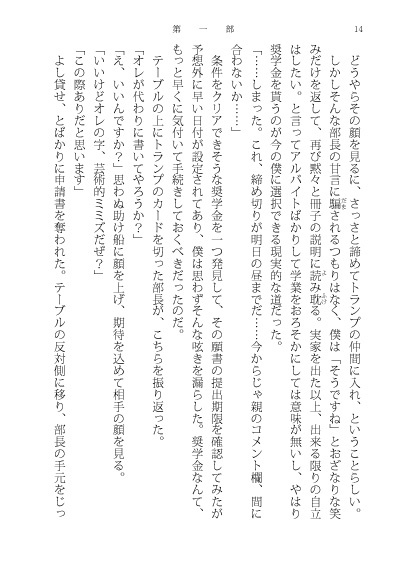 第一部
14
どうやらその顔を見るに、さっさと諦めてトランプの仲間に入れ、ということらしい。
しかしそんな部長の甘言に騙されるつもりはなく、僕は「そうですね」とおざなりな笑
みだけを返して、再び黙々と冊子の説明に読み耽る。実家を出た以上、出来る限りの自立
はしたい。と言ってアルバイトばかりして学業をおろそかにしては意味が無いし、やはり
奨学金を貰うのが今の僕に選択できる現実的な道だった。
「……しまった。これ、締め切りが明日の昼までだ……今からじゃ親のコメント欄、間に
合わないか……」
条件をクリアできそうな奨学金を一つ発見して、その願書の提出期限を確認してみたが
予想外に早い日付が設定されてあり、僕は思わずそんな呟きを漏らした。奨学金なんて、
もっと早くに気付いて手続きしておくべきだったのだ。
テーブルの上にトランプのカードを切った部長が、こちらを振り返った。
「オレが代わりに書いてやろうか?」
「え、いいんですか?」思わぬ助け船に顔を上げ、期待を込めて相手の顔を見る。
「いいけどオレの字、芸術的ミミズだぜ?」
「この際ありだと思います」
よし貸せ、とばかりに申請書を奪われた。テーブルの反対側に移り、部長の手元をじっ